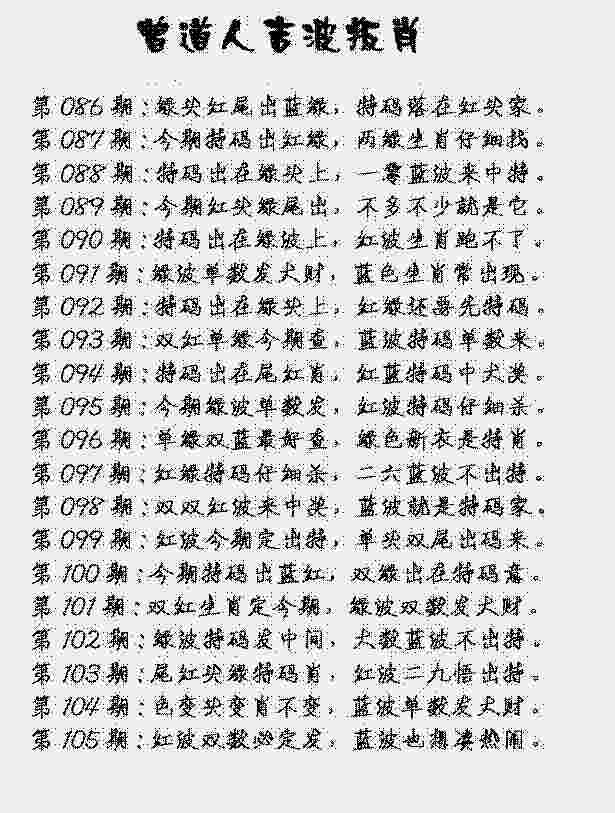 曾道人吉波叛肖
第086期：绿头红尾出蓝绿，特码落在红头家。
第087期：今期特码出红绿，两绿生肖仔细找。
第088期：特码出在绿头上，一零蓝波来中特。
第089期：今期红头绿尾出，不多不少就是它。
第090期：特码出在绿波上，红波生肖跑不了。
第091期：绿波单数发大财，蓝色生肖常出现。
第092期：特码出在绿头上，红绿还要先特码。
第093期：双红单绿今期查，蓝波特码单数来。
第094期：特码出在尾红肖，红蓝特码中大奖。
第095期：今期绿波单数发，红波特码仔细杀。
第096期：单绿双蓝最好查，绿色新衣是特肖。
第097期：红绿特码仔细杀，二六蓝波不出特。
第098期：双双红波来中奖，蓝波就是特码家。
第099期：红波今期定出特，单头双尾出码来。
第100期：今期特码出蓝红，双绿出在特码意。
第101期：双红生肖定今期，绿波双数发大财。
第102期：绿波特码发中间，大数蓝波不出特。
第103期：尾红头绿特码肖，红波二九悟出特。
第104期：色变头变肖不变，蓝波单数发大财。
第105期：红波双数必定发，蓝波也想凑热闹。